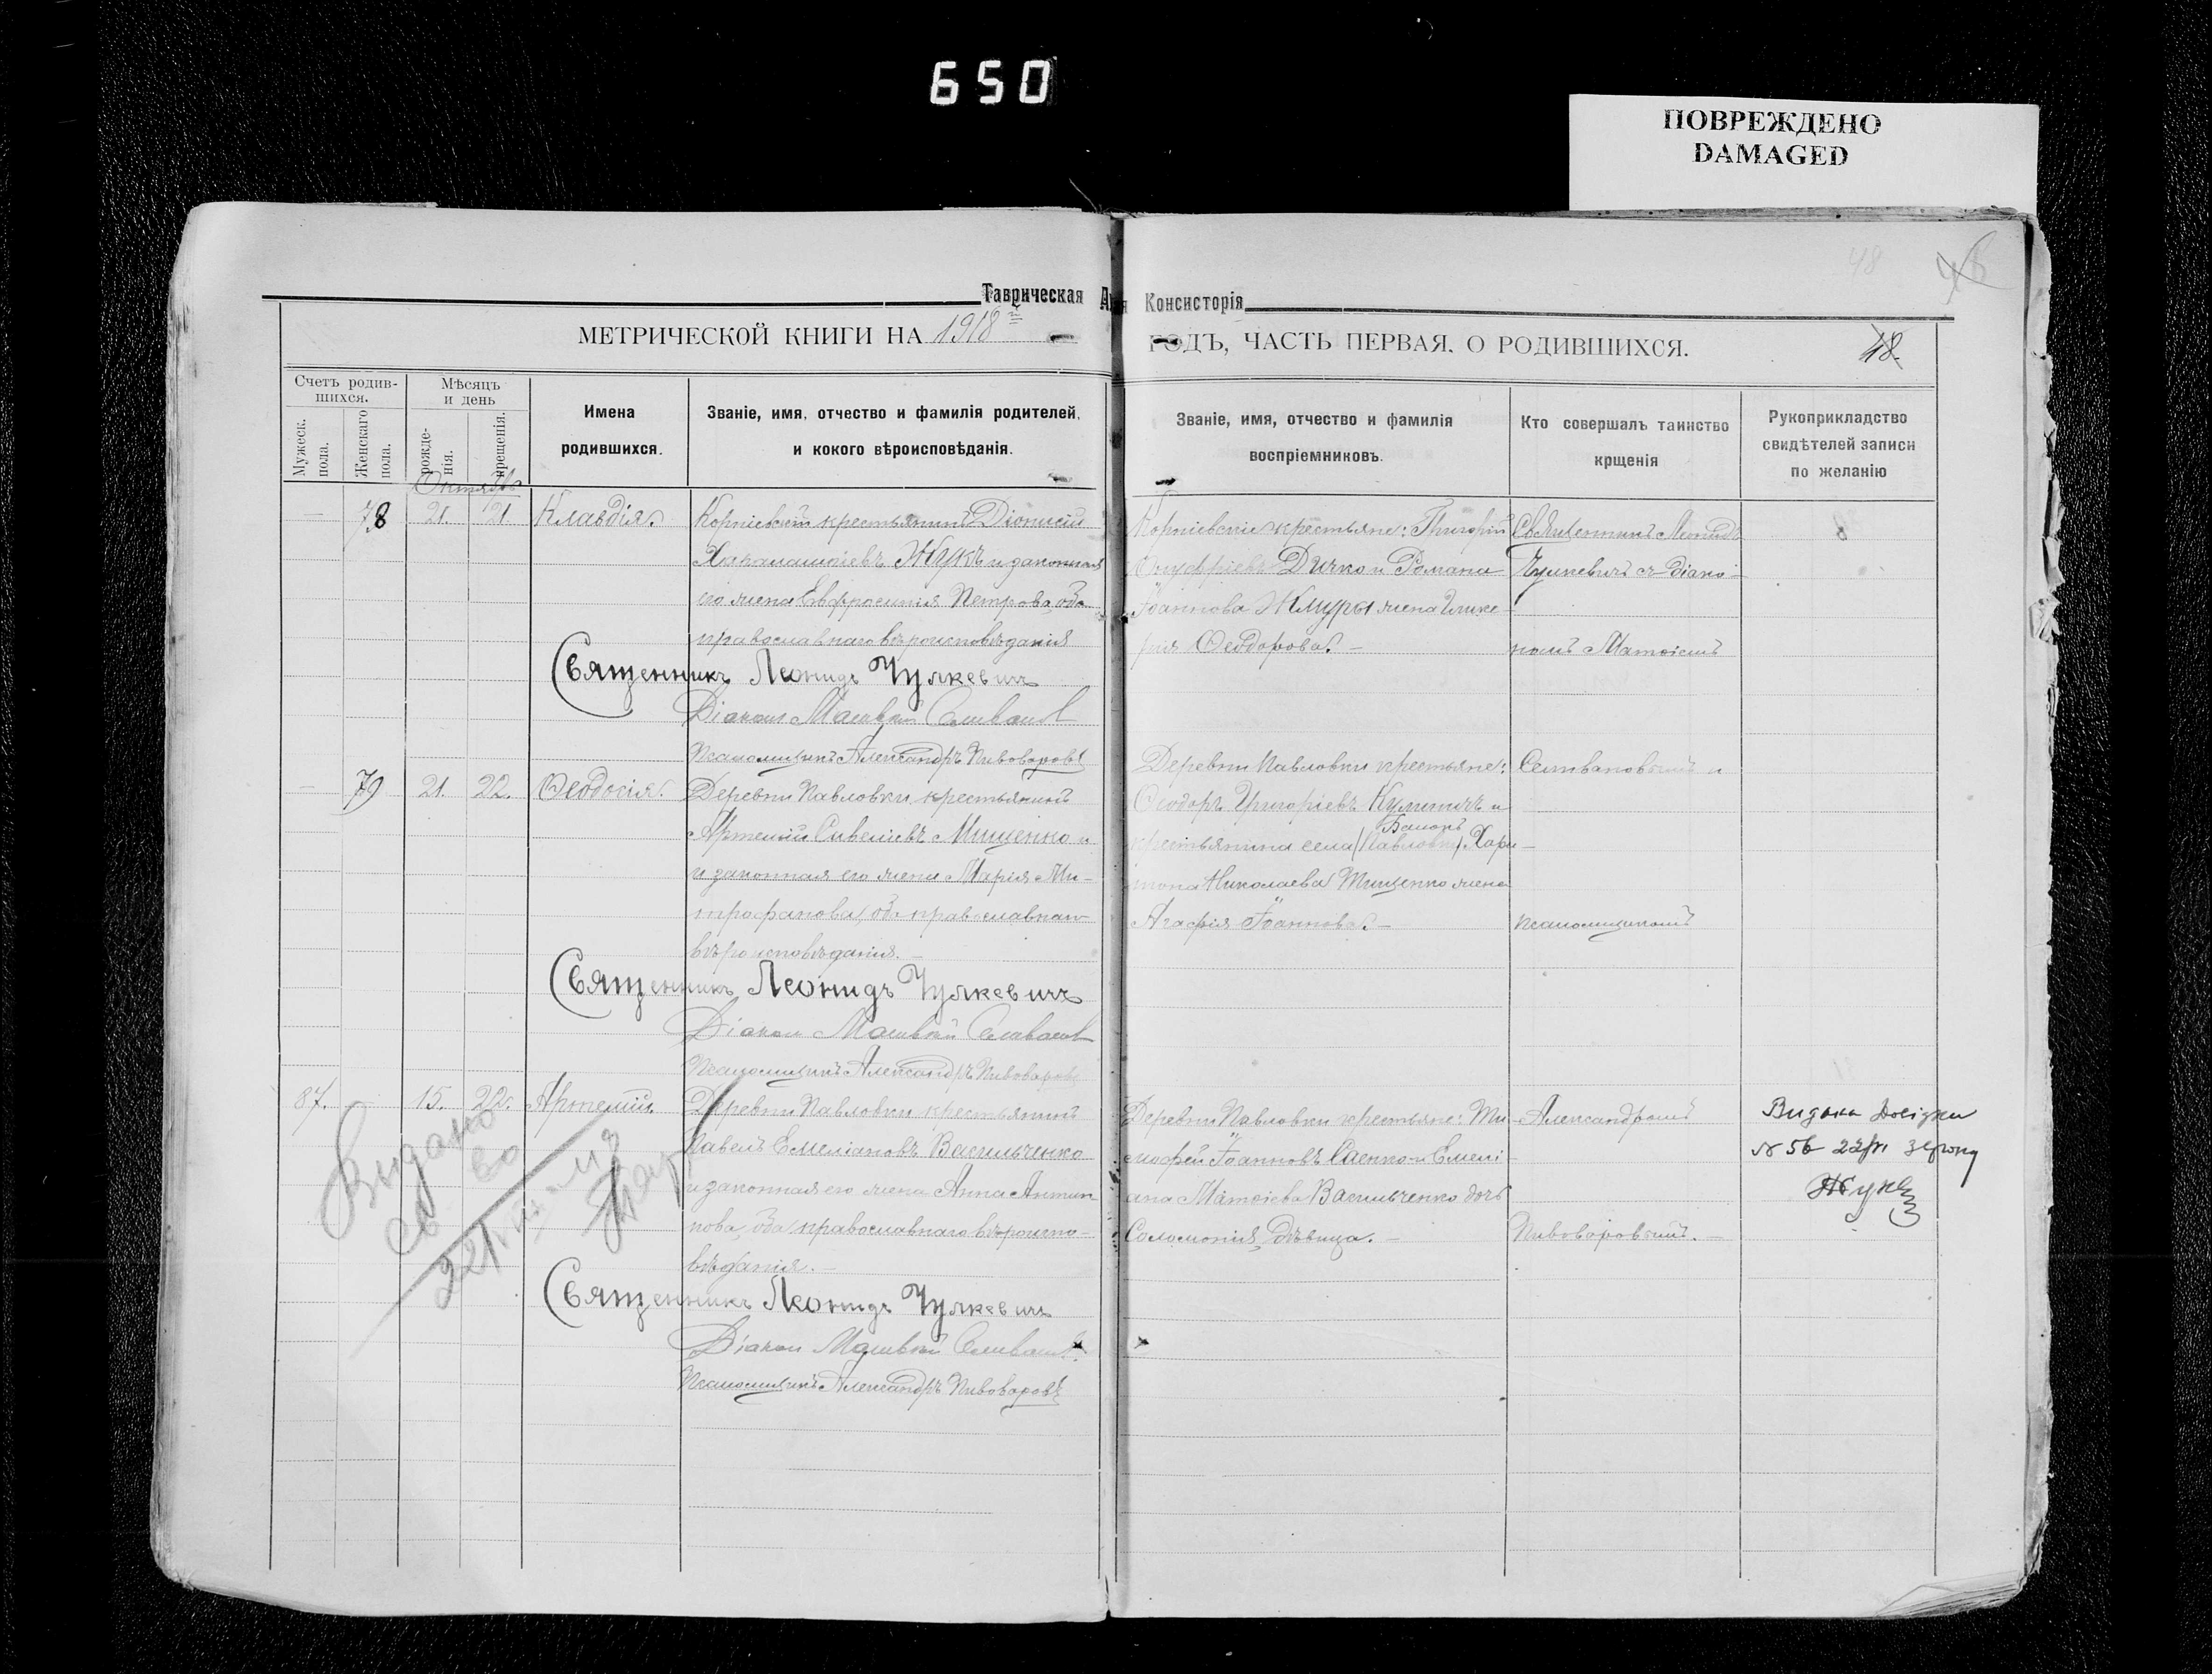 650
ПОВРЕЖДЕНО
DAMAGED
48
Таврическая
Консисторія
МЕТРИЧЕСКОЙ КНИГИ НА 1918
ГОДЪ, ЧАСТЬ ПЕРВАЯ. О РОДИВШИХСЯ.
48.
Счетъ родив-
шихся.
Мужеск.
пола.
Женскаго
пола.
Мѣсяцъ
и день
рожде-
нія.
крещенія.
Имена
родившихся.
Званіе, имя, отчество и фамилія родителей,
и кокого вѣроисповѣданія.
Званіе, имя, отчество и фамилія
воспріемниковъ.
Кто совершалъ таинство
крщенія
Рукоприкладство
свидѣтелей записи
по желанію
Октябрь
78
21.
21.
Клавдія.
Корніевскій крестьянинъ Діонисій
Харалампіевъ Жукъ и законная
его жена Евфросинія Петрова, оба
православнаго вѣроисповѣданія
Священникъ Леонидъ Чулкевичъ
Діаконъ
Псаломщикъ Александръ Пивоваровъ
Корніевскіе крестьяне: Григорій
Онуфріевъ Дичко и Романа
Іоаннова Жмуры жена Глике-
рія Ѳеодорова. —
Священникъ Леонидъ
Чулкевичъ съ діако-
номъ Матѳіемъ
79
21.
22.
Ѳеодосія.
Деревни Павловки крестьянинъ
Артемій Савеліевъ Мищенко и
и законная его жена Марія Ми-
трофанова, оба православнаго
вѣроисповѣданія. —
Священникъ Леонидъ Чулкевичъ
Діаконъ
Псаломщикъ Александръ Пивоваровъ
Деревни Павловки крестьяне:
Ѳеодоръ Григоріевъ и
крестьянина села (Павловки) Хари-
тона Николаева Тищенко жена
Агафія Іоаннова. —
Селивановымъ и
псаломщикомъ
87.
15.
22.
Артемій.
Деревни Павловки крестьянинъ
Павелъ Емеліановъ Васильченко
и законная его жена Анна Антип-
нова, оба православнаго вѣроиспо-
вѣданія. —
Священникъ Леонидъ Чулкевичъ
Діаконъ
Псаломщикъ Александръ Пивоваровъ
Деревни Павловки крестьяне: Ти-
мофей Іоанновъ Саенко и Емелі-
ана Матѳіева Васильченко дочь
Соломонія, дѣвица. —
Александромъ
Пивоваровымъ. —
Видано
Жук